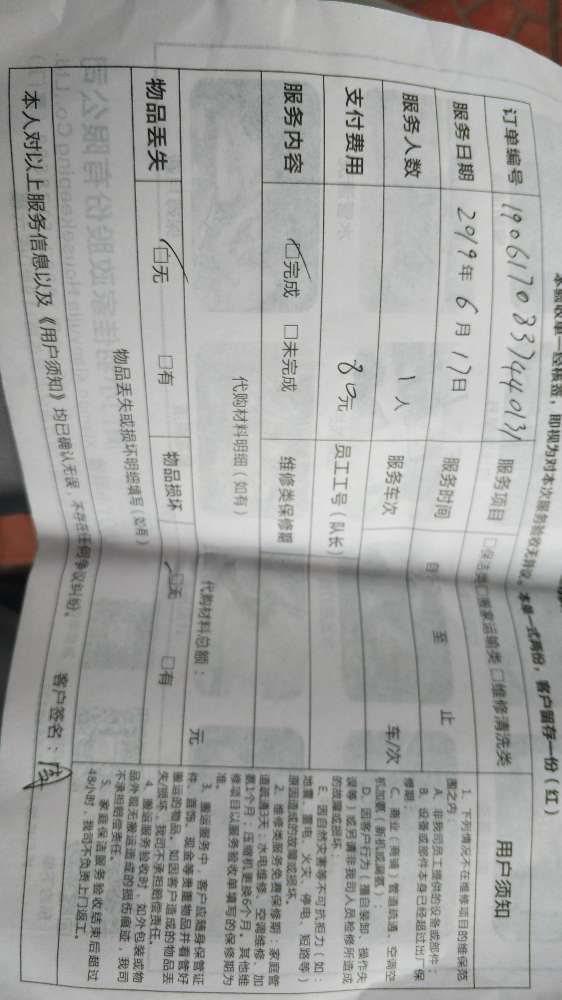 本验收单一经核签，即视为对本次服务验收无异议。本单一式两份，客户留存一份（红）
订单编号 1906170837440131 服务项目 □保洁类 □搬家运输类 □维修清洗类
服务日期 2019年6月17日 服务时间 自 至 止
服务人数 1人 服务车次 车/次
支付费用 80元 员工工号（队长）
服务内容 □完成 □未完成 维修类保修期：
代购材料明细（如有） 代购材料总额： 元
物品丢失 □无 □有 物品损坏 □无 □有
物品丢失或损坏明细填写（如有）
本人对以上服务信息以及《用户须知》均已确认无误，不存在任何争议纠纷。
客户签名：
用户须知
1、下列情况不在维修项目的维保范
围之内：
A、非我司员工提供的设备或部件；
B、设备或部件本身已经超过出厂保
修期；
C、商业（商铺）管道疏通、空调空
机加氟（新机或漏氟）；
D、因客户行为（擅自装卸、操作失
误等）或另请非我司人员检修所造成
的故障或损坏；
E、因自然灾害等不可抗拒力（如：
地震、雷电、火灾、停电、短路等）
原因造成的故障或损坏。
2、维修类服务免费保修期：家庭管
道疏通3天；水电维修、空调维修、加
氟1个月；压缩机更换6个月。其他维
修项目以服务验收单填写的保修期为
准。
3、搬运服务中，客户应随身保管证
件、首饰、现金等贵重物品并看管好
搬运的物品。如因客户造成的物品丢
失/损坏，我司不承担赔偿责任。
4、搬运服务验收时，如外包装或物
品外观无搬运造成的损伤痕迹，我司
不承担赔偿责任。
5、家庭保洁服务验收结束后超过
48小时，我司不负责上门返工。